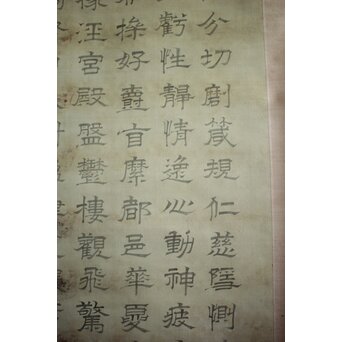 分切劘箴規仁慈隱惻
虧性靜情逸心動神疲
操好爵自縻都邑華夏
涇宮殿盤鬱樓觀飛驚